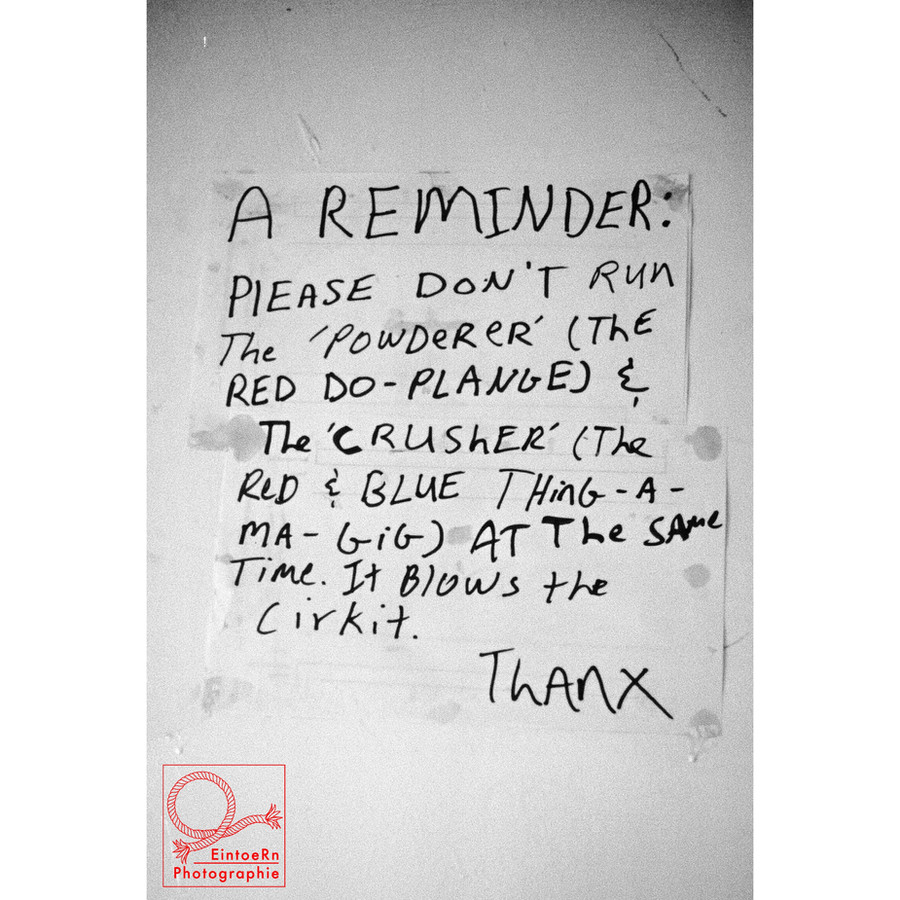 A REMINDER:
PlEASE DON'T RUn
The 'POWDeReR' (ThE
RED DO-PLANGE) &
The 'CRUShER' (The
ReD & BLUE THinG-A-
MA-GiG) AT The SAMe
Time. It Blows the
Cirkit.
ThAnx
EintoeRn
Photographie